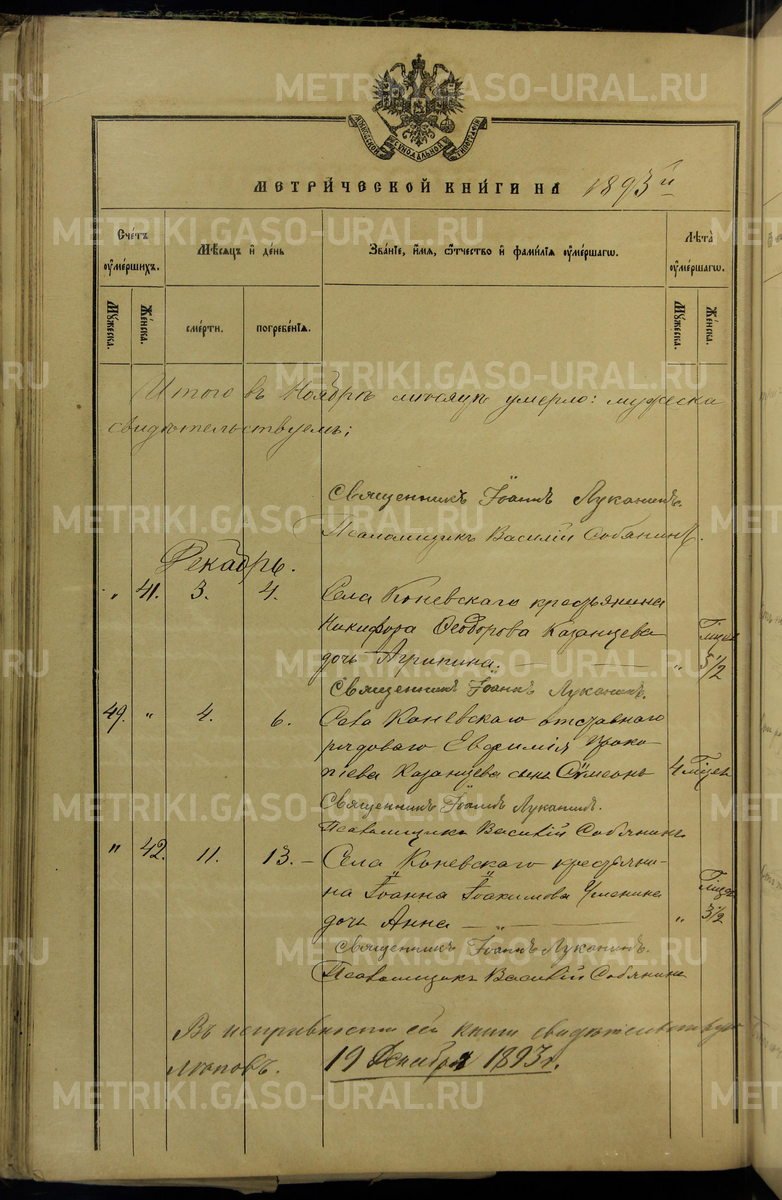 METRIKI.GASO-URAL.RU
СѴНОДАЛЬНОЙ ТИПОГРАФІИ
МЕТРИ́ЧЕСКОЙ КНИ́ГИ НА 1893й
Сче́тъ ᲂу҆ме́ршихъ.
Мѣ́сяцъ и҆ де́нь
Зва́нїе, и҆́мѧ, ѻ҆́тчество и҆ фами́лїѧ ᲂу҆ме́ршагѡ.
Лѣ́та ᲂу҆ме́ршагѡ.
Мꙋ́жеска.
Же́нска.
сме́рти.
погребе́нїѧ.
Мꙋ́жеска.
Же́нска.
Итого въ Ноябрѣ мѣсяцѣ умерло: мужеска
свидѣтельствуемъ;
Священникъ Іоаннъ Луканинъ.
Псаломщикъ Василій Собянинъ.
Декабрь.
" 41. 3. 4. Села Коневскаго крестьянина
Никифора Ѳеодорова Казанцева
дочь Агрипина. — — " 5 1/2
Священникъ Іоаннъ Луканинъ.
49. " 4. 6. Села Коневскаго отставного
рядоваго Евфимія Проко-
піева Казанцева сынъ Сѵмеонъ 4
Священникъ Іоаннъ Луканинъ.
Псаломщикъ Василій Собянинъ
" 42. 11. 13. — Села Коневскаго крестьяни-
на Іоанна Іоакимова
дочь Анна — " — " 3 1/2
Священникъ Іоаннъ Луканинъ.
Псаломщикъ Василій Собянинъ
Въ исправности сей книги свидѣтельствую
19 Декабря 1893 г.